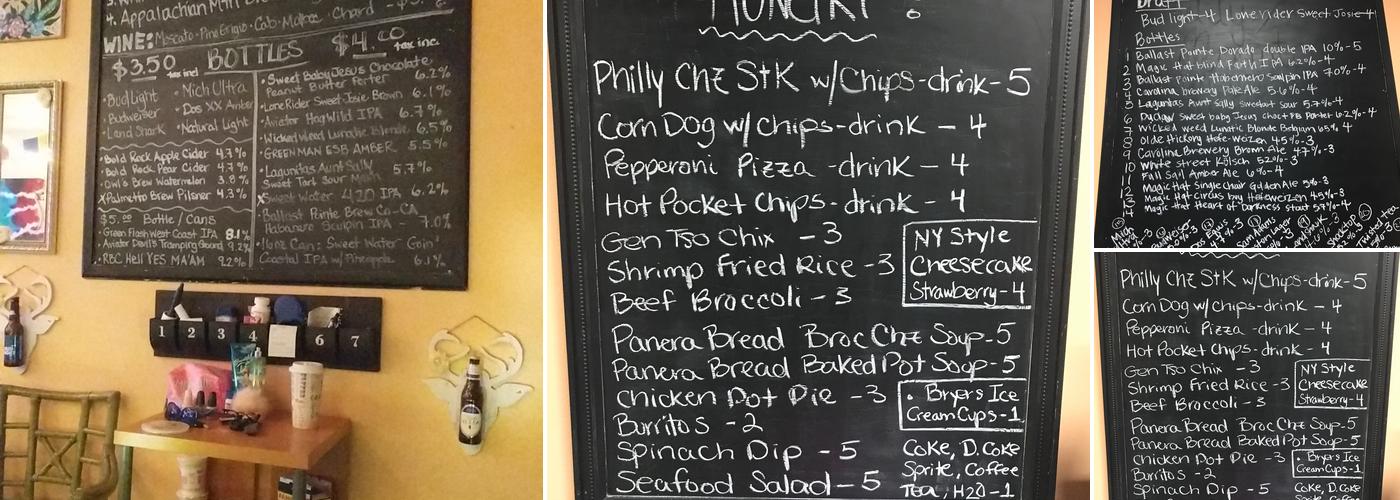 4. Appalachian Mtn
WINE: Moscato · Pino Erigio · Cab · Malbec · Chard
BOTTLES
$3.50 tax incl
$4.00 tax inc.
· Bud Light
· Mich Ultra
Budweiser
· Dos XX Amber
· Land Shark
· Natural Light
· Bold Rock Apple Cider 4.7%
· Bold Rock Pear Cider 4.7%
· Owl's Brew Watermelon 3.8%
x Palmetto Brew Pilsner 4.3%
$5.00 Bottle/Cans
· Green Flash West Coast IPA 8.1%
· Aviator Devil's Tramping Ground 9.2%
· RBC Hell YES MA'AM 9.2%
· Sweet Baby Jesus Chocolate
Peanut Butter Porter 6.2%
· Lone Rider Sweet Josie Brown 6.1%
· Aviator Hog Wild IPA 6.7%
· Wicked Weed Lunatic Blonde 6.5%
· GREEN MAN ESB AMBER 5.5%
· Lagunitas Aunt Sally 5.7%
Sweet Tart Sour Mash
x Sweet Water 420 IPA 6.2%
· Ballast Pointe Brew Co-CA
Habanero Sculpin IPA 7.0%
· 16oz Can: Sweet Water Goin'
Coastal IPA w/ Pineapple 6.1%
1 2 3 4 6 7
HUNGRY ?
Philly Chz StK w/Chips-drink-5
Corn Dog w/ chips-drink - 4
Pepperoni Pizza -drink - 4
Hot Pocket Chips-drink - 4
Gen Tso Chix - 3
Shrimp Fried Rice - 3
Beef Broccoli - 3
NY Style
Cheesecake
Strawberry-4
Panera Bread Broc Chz Soup-5
Panera Bread Baked Pot Soup-5
Chicken Pot Pie - 3
· Bryers Ice
Cream Cups-1
Burritos - 2
Spinach Dip - 5
Seafood Salad - 5
Coke, D. Coke
Sprite, Coffee
Tea, H20-1
Draft
Bud light-4 Lonerider Sweet Josie-4
Bottles
1 Ballast Pointe Dorado double IPA 10%-5
2 Magic Hat blind Faith IPA 6.2%-4
3 Ballast Pointe Habenero Sculpin IPA 7.0%-4
4 Carolina brewery Pale Ale 5.6%-4
5 Lagunitas Aunt Sally Sweetart sour 5.7%-4
6 DuClaw Sweet baby Jesus choc+PB Porter 6.2%-4
7 Wicked weed Lunatic Blonde Belgium 6.5% 4
8 Olde Hickory Hefe-Weizen 4.5%-3
9 Caroline Brewery Brown Ale 4.7%-3
10 White Street Kölsch 5.2%-3
11 Full Sail Amber Ale 6%-4
12 Magic Hat Single Chair Golden Ale 5%-3
13 Magic Hat Circus boy Hefeweizen 4.5%-3
14 Magic Hat Heart of Darkness Stout 5.7%-4
Philly Chz StK w/Chips-drink-5
Corn Dog w/ Chips-drink - 4
Pepperoni Pizza -drink - 4
Hot Pocket Chips-drink - 4
Gen Tso Chix - 3
Shrimp Fried Rice - 3
Beef Broccoli - 3
NY Style
Cheesecake
Strawberry-4
Panera Bread Broc Chz Soup-5
Panera Bread Baked Pot Soup-5
Chicken Pot Pie - 3
· Bryers Ice
Cream Cups-1
Burritos - 2
Spinach Dip - 5
Coke, D. Coke